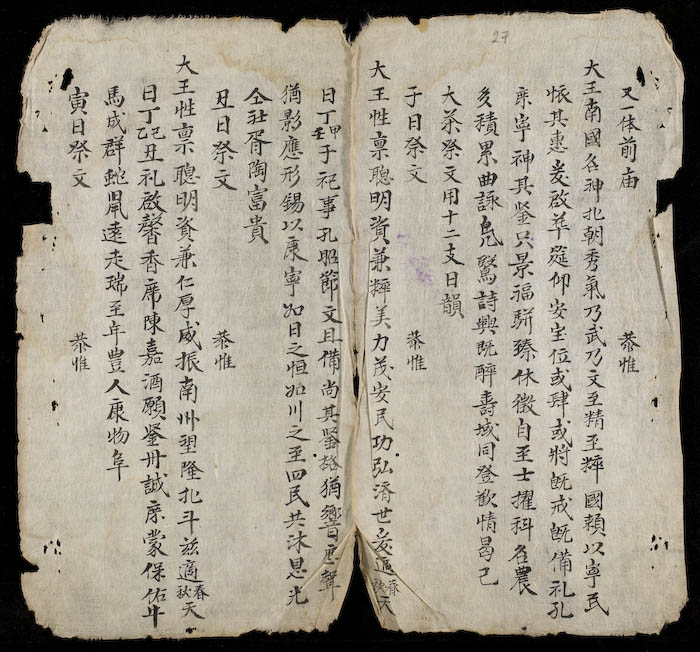 27
又一体前庙 恭惟
大王南國名神北朝秀氣乃武乃文至精至粹國賴以寧民
怀其惠爰啟草筵仰安宝位或肆或将既戒既備礼孔
寧神其鉴只景福駢臻休徵自至士擢科名農
多積累曲詠鳬鷖詩興既醉壽域同登歡情曷已
大茶祭文用十二支日韻
子日祭文 恭惟
大王性禀聰明資兼粹美力茂安民功弘濟世爰適春秋天
日丁甲壬子祀事孔昭節文且備尚其鉴格猶響應聲
猶影應形錫以康寧如日之恒如川之至四民共沐恩光
仝社胥陶富貴
丑日祭文 恭惟
大王性禀聰明資兼仁厚威振南州望隆北斗兹適春秋天
日丁己乙丑礼啟馨香席陳嘉酒願鉴丹誠庶蒙保佑牛
馬成群蛇鼠遠走瑞至年豊人康物阜
寅日祭文 恭惟